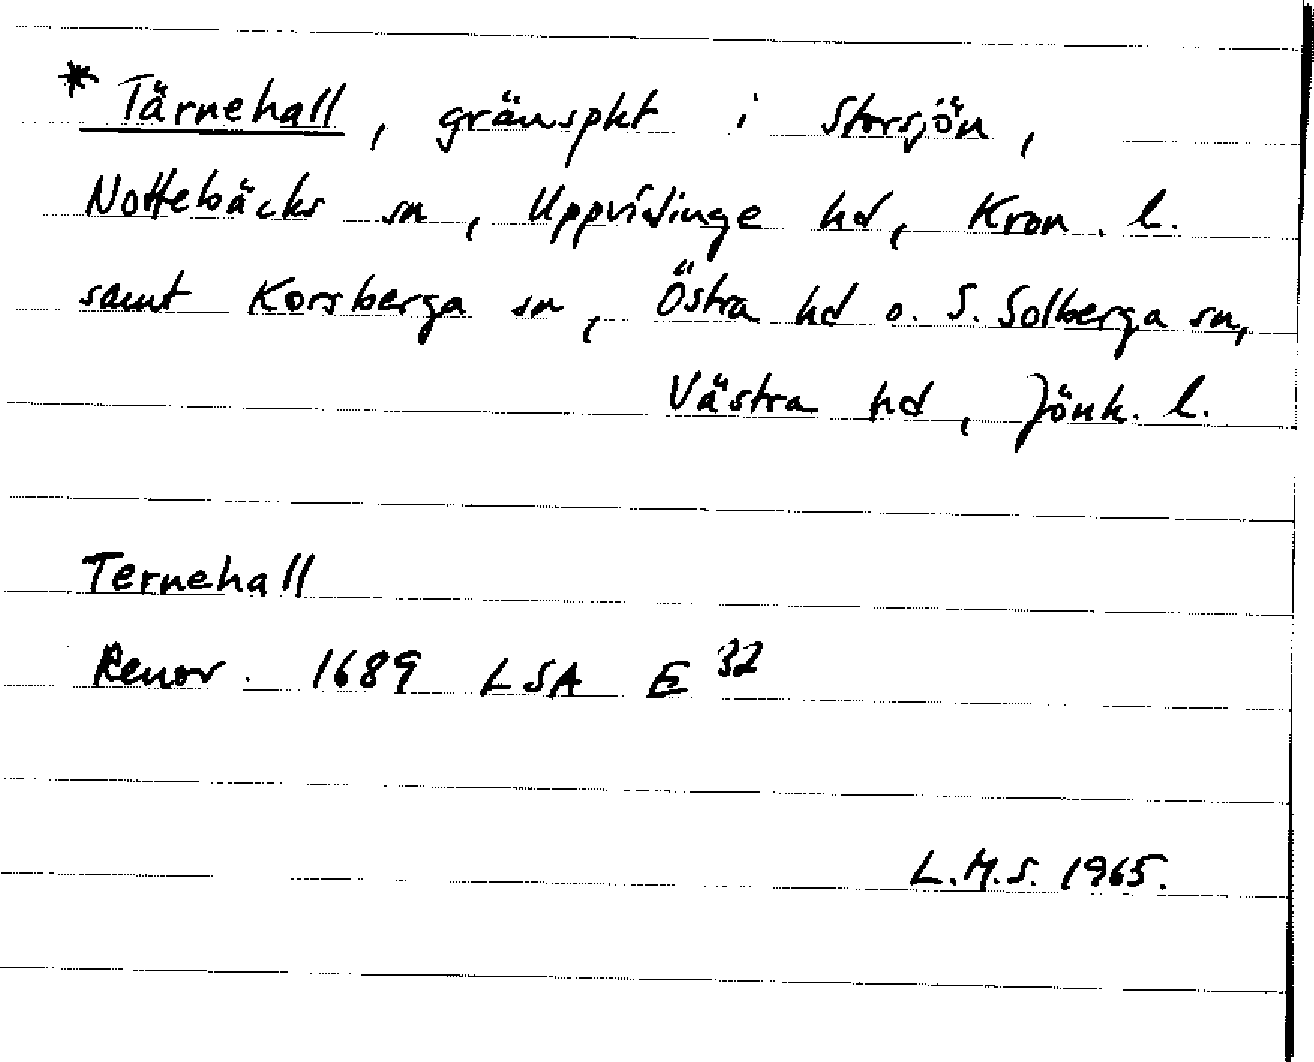 * Tärnehall, gränspkt i Storsjön,
Nottebäcks sn, Uppvidinge hd, Kron. l.
samt Korsberga sn, Östra hd o. S. Solberga sn,
Västra hd, Jönk. l.
Ternehall
Renov. 1689 LSA E 32
L.M.S. 1965.